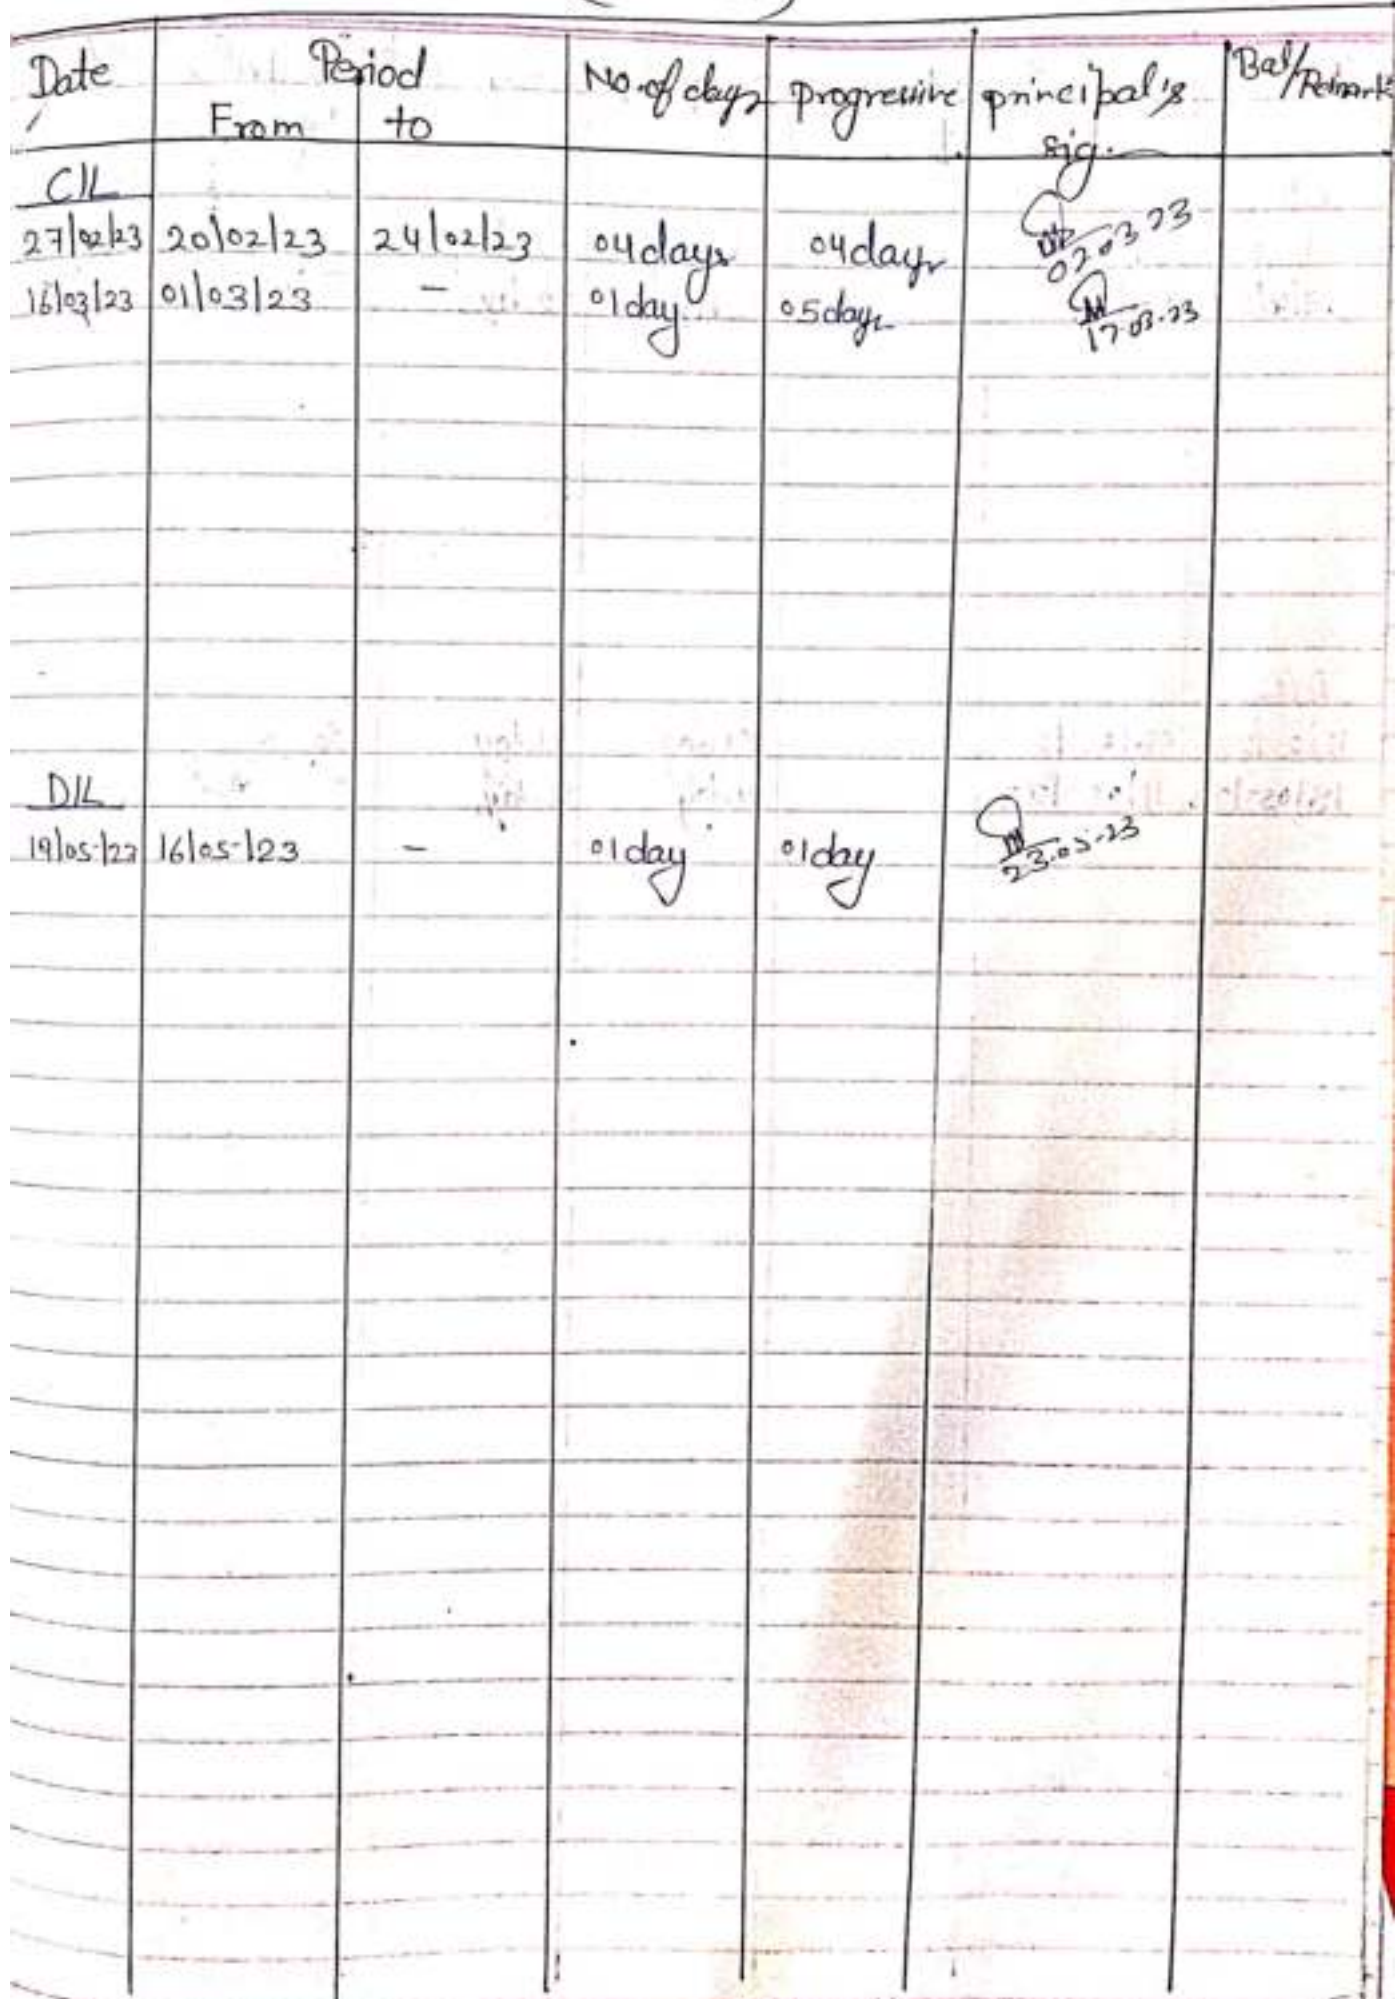 Date Period No. of days progressive principal's Bal/Remark
From to sig.
C/L
27/02/23 20/02/23 24/02/23 04 days 04 days 02.03 23
16/03/23 01/03/23 - 01 day 05 days 17.03.23
D/L
19/05/23 16/05/23 - 01 day 01 day 23.05.23